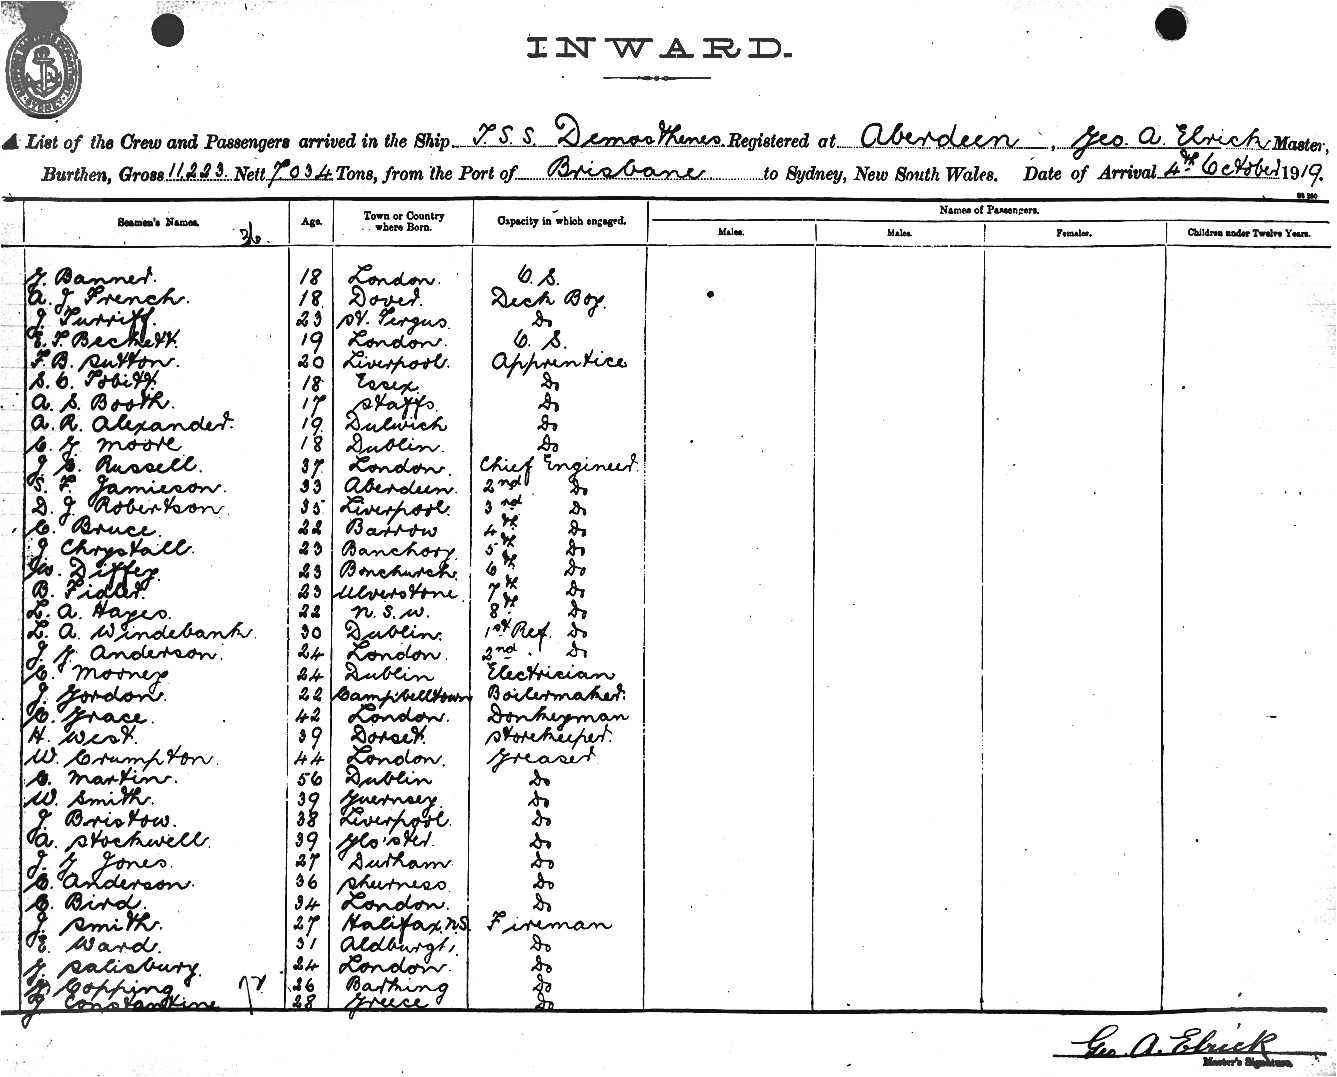 INWARD.
A List of the Crew and Passengers arrived in the Ship T.S.S. Demosthenes. Registered at Aberdeen, Geo. A. Elrick Master,
Burthen, Gross 11223 Nett 7034 Tons, from the Port of Brisbane to Sydney, New South Wales. Date of Arrival 4th October 1919.
Seamen's Names. Age. Town or Country where Born. Capacity in which engaged. Names of Passengers.
Males. Males. Females. Children under Twelve Years.
G. Banner. 18 London. O. S.
A. J. French. 18 Dover. Deck Boy.
J. Turriff. 23 St. Fergus. Do
E. T. Beckett. 19 London. O. S.
F. B. Sutton. 20 Liverpool. Apprentice
S. C. Tobitt. 18 Essex. Do
A. S. Booth. 17 Staffs. Do
A. R. Alexander. 19 Dulwich Do
C. G. Moore 18 Dublin. Do
J. C. Russell. 37 London. Chief Engineer.
S. F. Jamieson. 33 Aberdeen. 2nd Do
D. J. Robertson. 35 Liverpool. 3rd Do
C. Bruce. 22 Barrow 4th Do
J. Chrystall. 23 Banchory. 5th Do
Diffey. 23 Bonchurch. 6th Do
B. Fidler. 23 Ulverstone. 7th Do
L. A. Hayes. 22 N. S. W. 8th Do
L. A. Windebank. 30 Dublin. 1st Ref. Do
J. G. Anderson. 24 London. 2nd Do
C. Mooney 24 Dublin Electrician
J. Gordon. 22 Campbelltown Boilermaker.
C. Grace. 42 London. Donkeyman
H. West. 39 Dorset. Storekeeper.
W. Crumpton. 44 London. Greaser
C. Martin. 56 Dublin Do
W. Smith. 39 Guernsey. Do
J. Bristow. 38 Liverpool. Do
A. Stockwell. 39 Glo'ster. Do
J. G. Jones. 27 Durham Do
C. Anderson. 36 Sheerness. Do
C. Bird. 34 London. Do
J. Smith. 27 Halifax, N.S. Fireman
E. Ward. 31 Aldburgh. Do
G. Salisbury. 24 London. Do
G. Copping 26 Barking Do
G. Constantine 28 Greece Do
Geo. A. Elrick
Master's Signature.